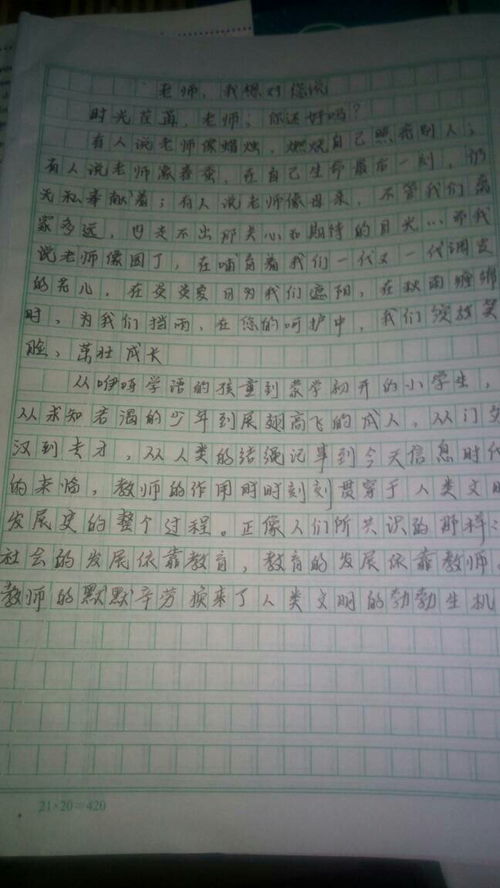 老师,我想对您说
时光荏苒,老师,你还好吗?
有人说老师像蜡烛,燃烧自己照亮别人;
有人说老师像春蚕,在自己生命最后一刻,仍
无私奉献着;有人说老师像母亲,不管我们离
家多远,也走不出那关心和期待的目光…而我
说老师像园丁,在哺育着我们一代又一代调皮
的花儿,在炎炎夏日为我们遮阳,在秋雨缠绵
时,为我们挡雨,在您的呵护中,我们绽放笑
脸,茁壮成长
从咿呀学语的孩童到蒙学初开的小学生,
从求知若渴的少年到展翅高飞的成人,从门外
汉到专才,从人类的结绳记事到今天信息时代
的来临,教师的作用时时刻刻贯穿于人类文明
发展史的整个过程。正像人们所共识的那样:
社会的发展依靠教育,教育的发展依靠教师。
教师的默默辛劳换来了人类文明的勃勃生机
21×20=420